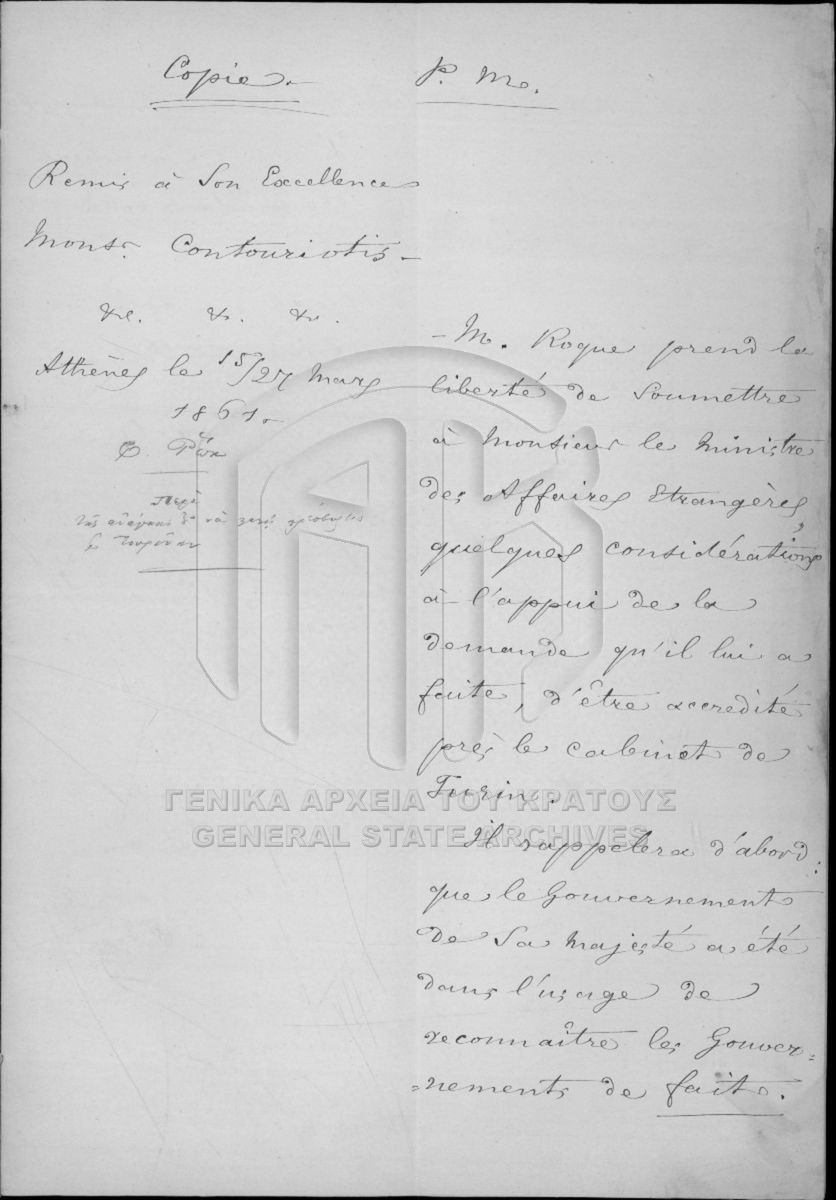 Copie.
P. M.
Remis à Son Excellence
Monsr. Contouriotis
&c. &c. &c.
Athènes le 15/27 Mars
1861.
Φ. Ρὸκ
Περὶ
τῆς ἀνάγκης νὰ
Τουρίνου
M. Roque prend la
liberté de Soumettre
à Monsieur le Ministre
des Affaires Etrangères,
quelques considérations
à l'appui de la
demande qu'il lui a
faite, d'être accredité
près le cabinet de
Turin.
Il rappelera d'abord:
que le Gouvernement
de Sa Majesté a été
dans l'usage de
reconnaître les Gouver=
=nements de fait.
ΓΕΝΙΚΑ ΑΡΧΕΙΑ ΤΟΥ ΚΡΑΤΟΥΣ
GENERAL STATE ARCHIVES